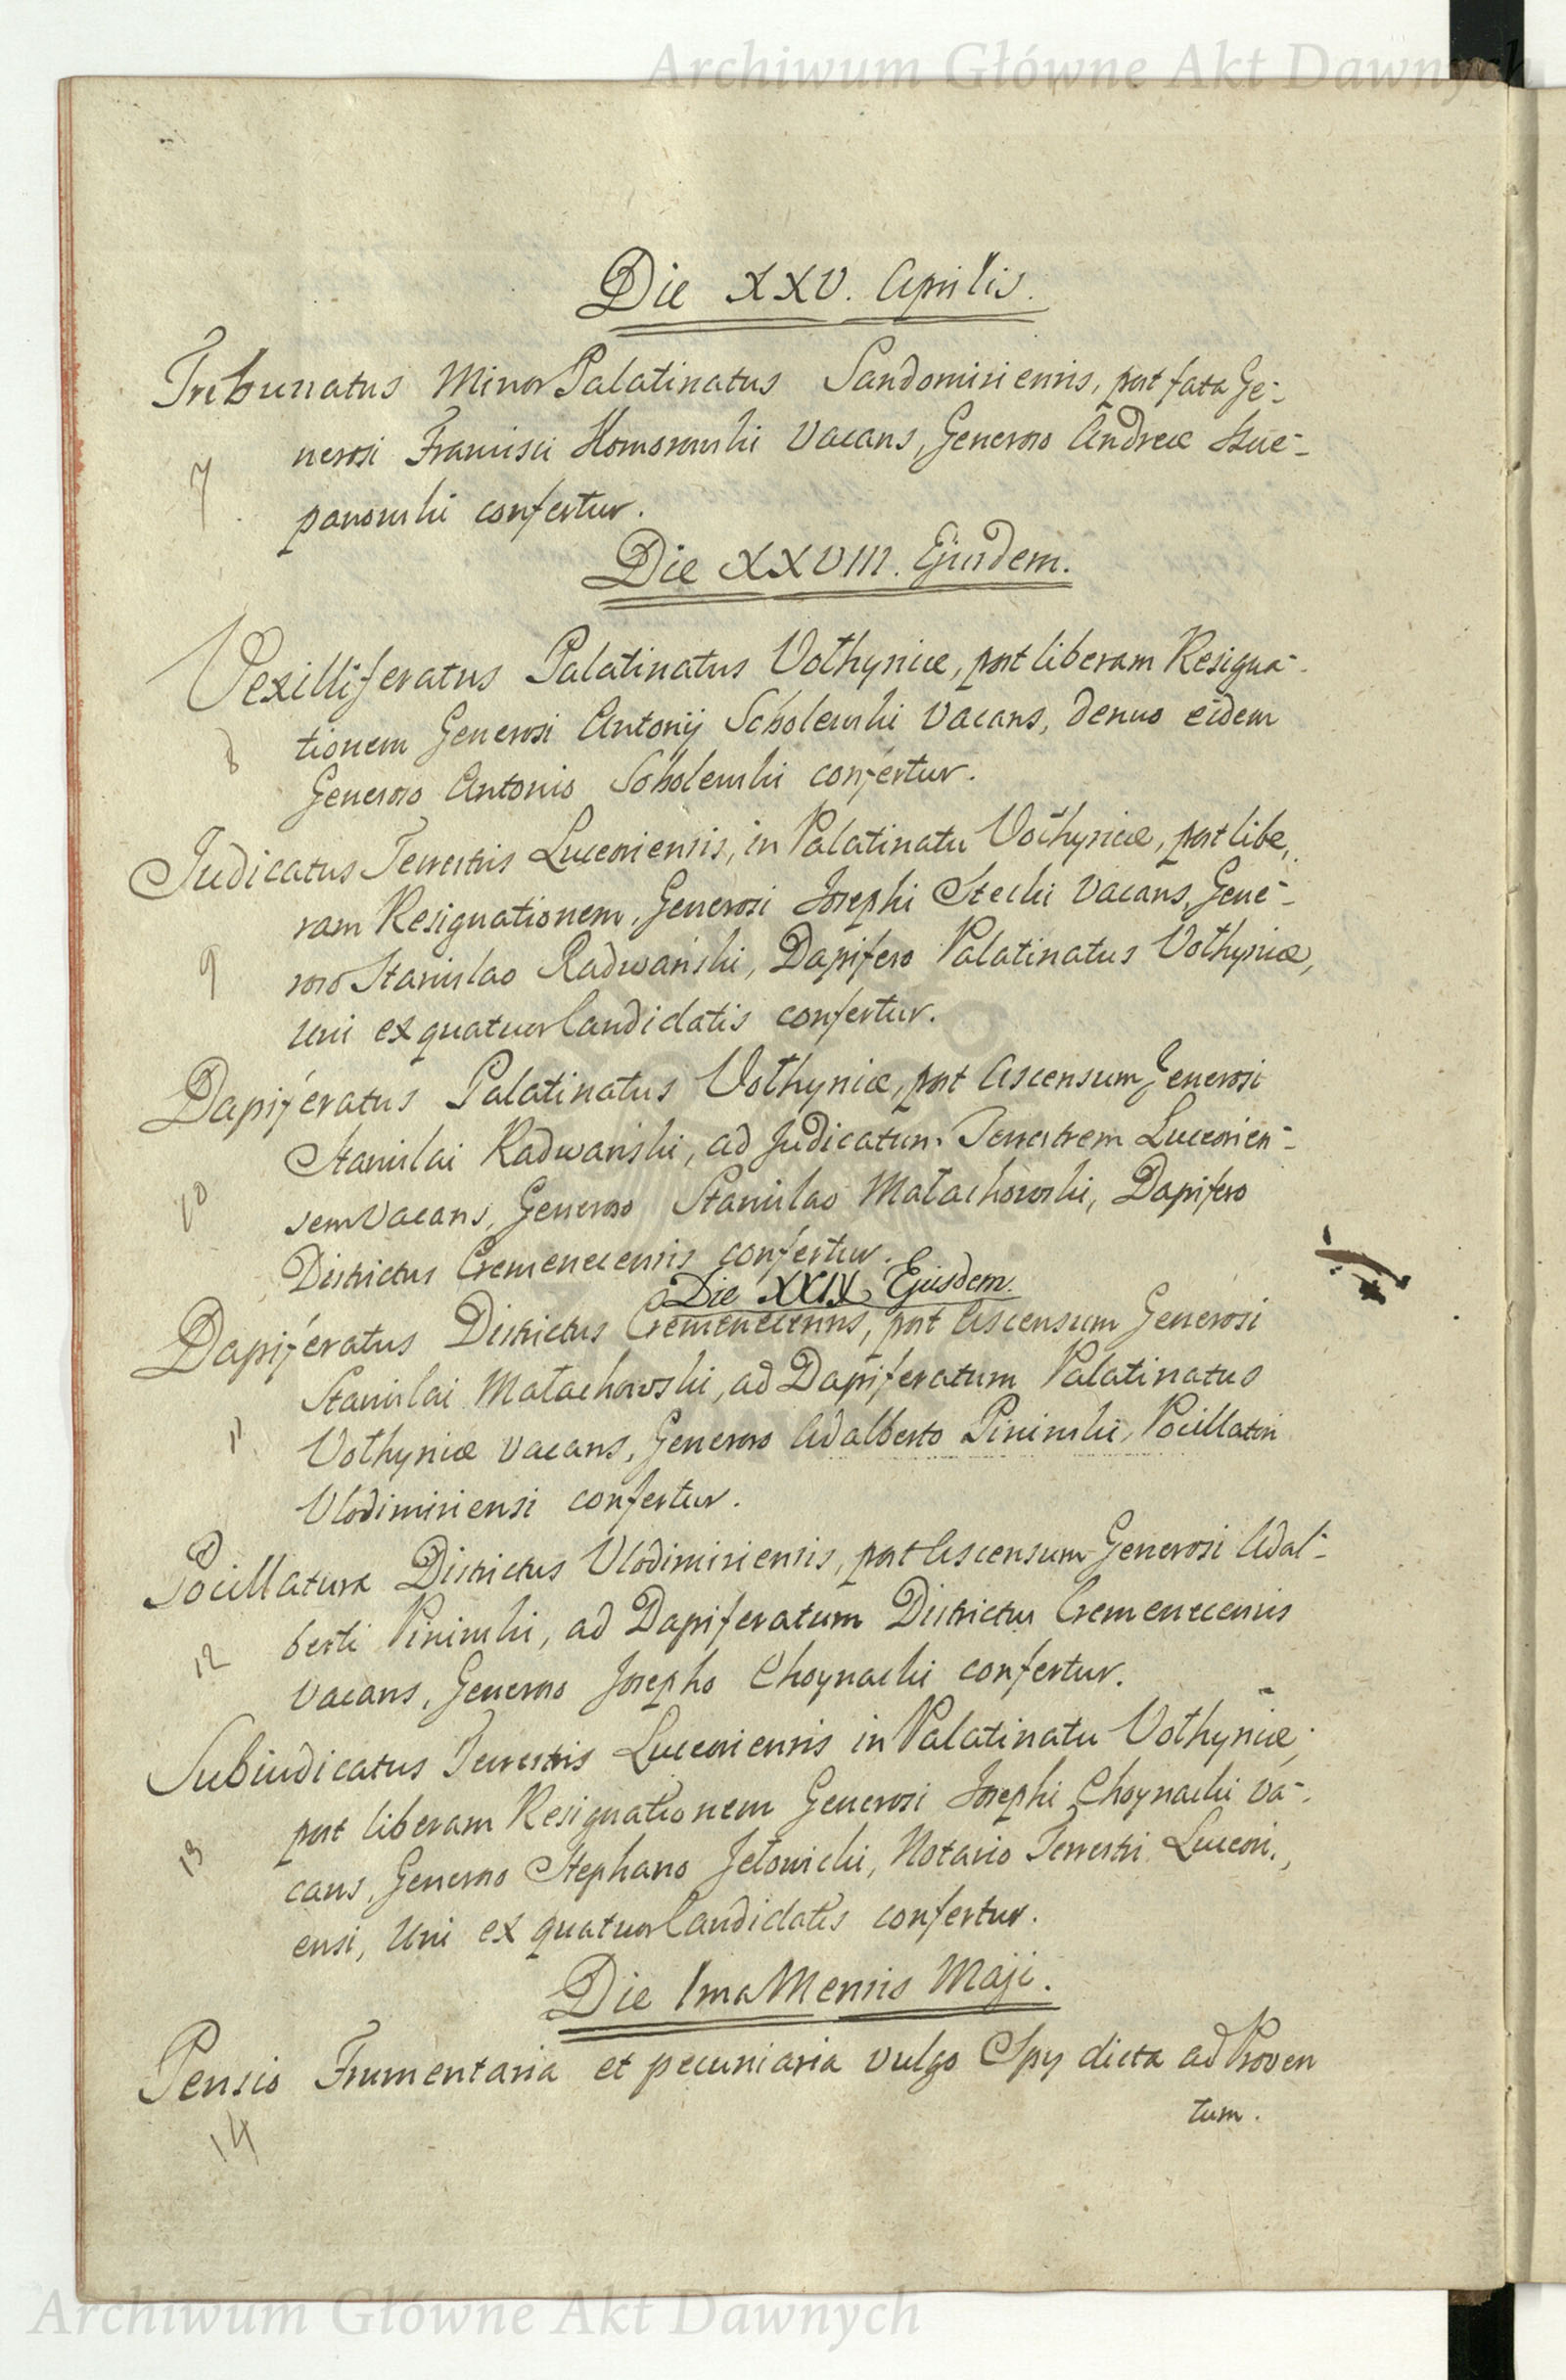 Archiwum Główne Akt Dawnych
Die XXV. Aprilis.
Tribunatus Minor Palatinatus Sandomiriensis, post fata Ge-
nerosi Francisci Komorowski Vacans, Generoso Andreæ
7
panowski confertur.
Die XXVIII. Ejusdem.
Vexilliferatus Palatinatus Vołhyniæ, post liberam Resigna-
8 tionem Generosi Antonij Sobolewski Vacans, denuo eidem
Generoso Antonio Sobolewski confertur.
Judicatus Terrestris Luceoriensis, in Palatinatu Vołhyniæ, post libe,
ram Resignationem, Generosi Josephi Stecki Vacans, Gene-
9 roso Stanislao Radwański, Dapifero Palatinatus Vołhyniæ,
Uni ex quatuor Candidatis confertur.
Dapiferatus Palatinatus Vołhyniæ, post Ascensum Generosi
Stanislai Radwański, ad Judicatum Terrestrem Luceorien-
10 sem Vacans, Generoso Stanislao Małachowski, Dapifero
Districtus Cremenecensis confertur.
Die XXIX Ejusdem.
Dapiferatus Districtus Cremenecensis, post Ascensum Generosi
Stanislai Małachowski, ad Dapiferatum Palatinatus
11 Vołhyniæ vacans, Generoso Adalberto Pininski, Pocillatori
Vlodimiriensi confertur.
Pocillatura Districtus Vlodimiriensis, post Ascensum Generosi Adal-
12 berti Pininski, ad Dapiferatum Districtus Cremenecensis
Vacans, Generoso Josepho Choynacki confertur.
Subiudicatus Terrestris Luceoriensis in Palatinatu Vołhyniæ,
post liberam Resignationem Generosi Josephi Choynacki Va-
13 cans, Generoso Stephano Jełowicki, Notario Terrestri Luceori,
ensi, Uni ex quatuor Candidatis confertur.
Die 1ma Mensis Maji.
Pensio Frumentaria et pecuniaria vulgo Spy dicta ad Proven
tum.
14
Archiwum Główne Akt Dawnych